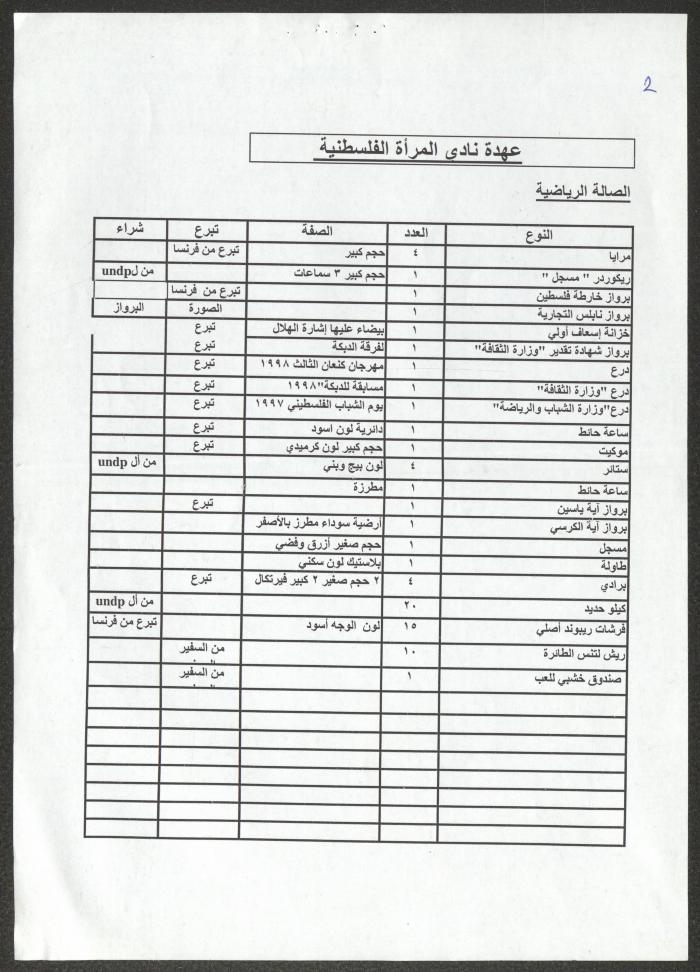 2
عهدة نادي المرأة الفلسطنية
الصالة الرياضية
النوع العدد الصفة تبرع شراء
مرايا ٤ حجم كبير تبرع من فرنسا
ريكوردر " مسجل " ١ حجم كبير ٣ سماعات من لundp
برواز خارطة فلسطين ١ تبرع من فرنسا
برواز نابلس التجارية ١ الصورة البرواز
خزانة إسعاف أولي ١ بيضاء عليها إشارة الهلال تبرع
برواز شهادة تقدير "وزارة الثقافة" ١ لفرقة الدبكة تبرع
درع ١ مهرجان كنعان الثالث ١٩٩٨ تبرع
درع "وزارة الثقافة" ١ مسابقة للدبكة"١٩٩٨ تبرع
درع"وزارة الشباب والرياضة" ١ يوم الشباب الفلسطيني ١٩٩٧ تبرع
ساعة حائط ١ دائرية لون اسود تبرع
موكيت ١ حجم كبير لون كرميدي تبرع
ستائر ٤ لون بيج وبني من أل undp
ساعة حائط ١ مطرزة
برواز آية ياسين ١ تبرع
برواز آية الكرسي ١ أرضية سوداء مطرز بالأصفر
مسجل ١ حجم صغير أزرق وفضي
طاولة ١ بلاستيك لون سكني
برادي ٤ ٢ حجم صغير ٢ كبير فيرتكال تبرع
كيلو حديد ٢٠ من أل undp
فرشات ريبوند أصلي ١٥ لون الوجه أسود تبرع من فرنسا
ريش لتنس الطائرة ١٠ من السفير
صندوق خشبي للعب ١ من السفير